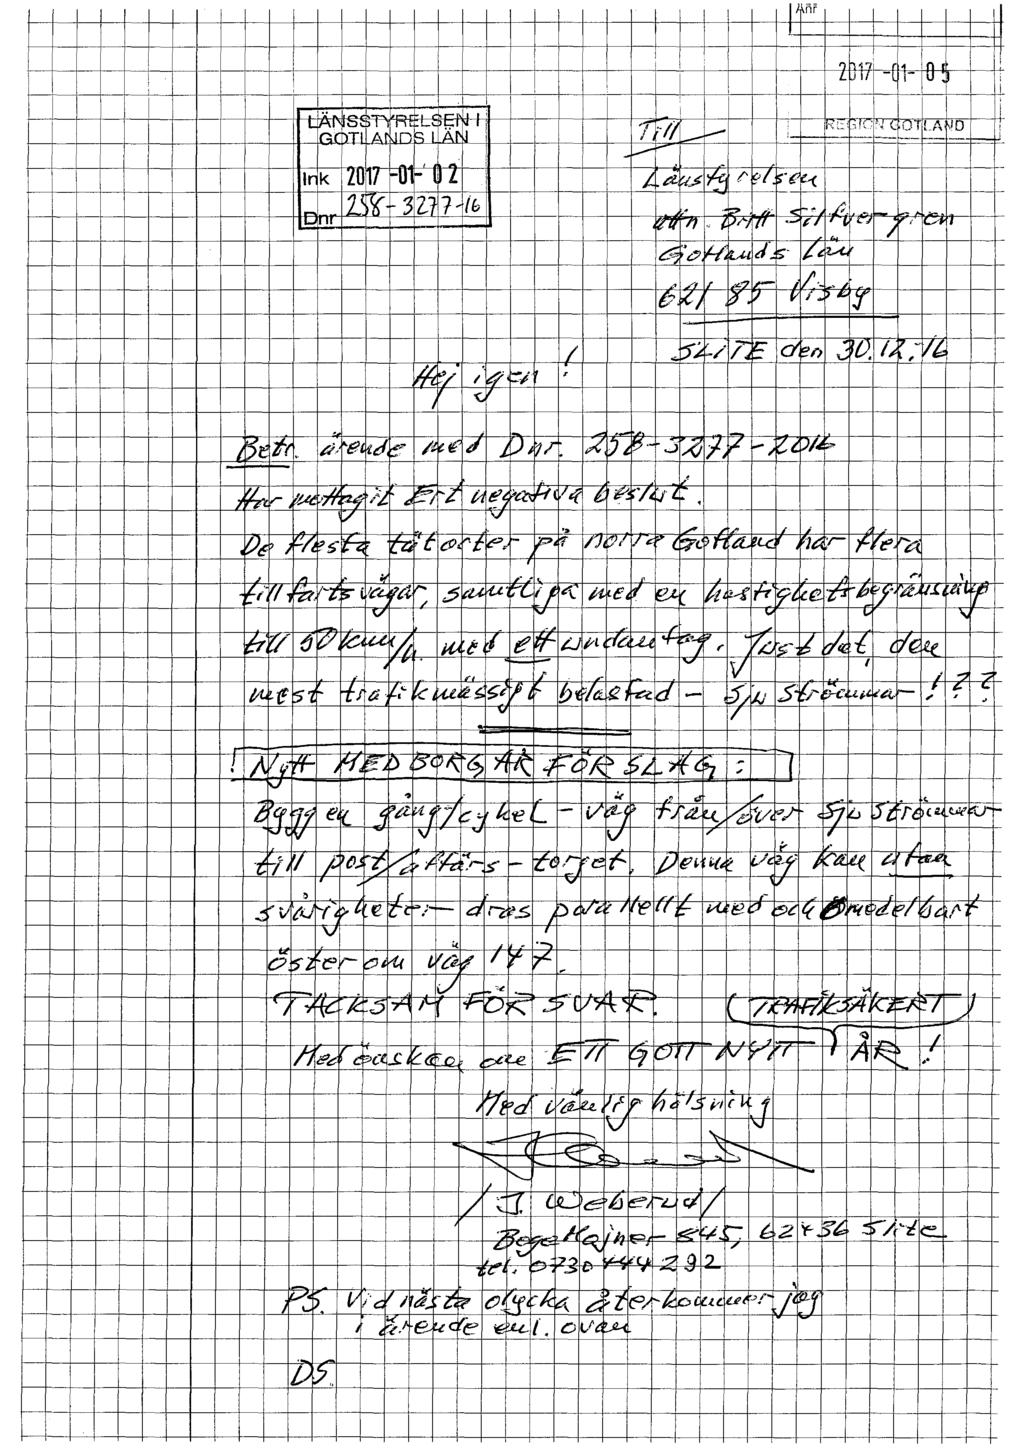 Anf
2017 -01- 05
REGION GOTLAND
LÄNSSTYRELSEN I
GOTLANDS LÄN
Ink 2017 -01- 02
Dnr 258-3277-16
Till
Länstyrelsen
attn. Britt Silfvergren
Gotlands Län
621 85 Visby
SLITE den 30.12.-16
Hej igen!
Betr. ärende med Dnr. 258-3277-2016
Har mottagit Ert negativa beslut.
De flesta tätorter på norra Gotland har flera
tillfartsvägar, samtliga med en hastighetsbegränsning
till 50 km/h. med ett undantag. Just det, den
mest trafikmässigt belastad - Sju Strömmar!??
! Nytt MEDBORGARFÖRSLAG:
Bygg en gång/cykel-väg från/över Sju Strömmar
till post/affärs-torget. Denna väg kan utan
svårigheter dras parallellt med och omedelbart
öster om väg 147.
TACKSAM FÖR SVAR. (TRAFIKSÄKERT)
Med önskan om ETT GOTT NYTT ÅR!
Med vänlig hälsning
/J. Weberud/
Boge Majner 545, 624 36 Slite
tel. 0730 444 292
PS. Vid nästa olycka återkommer jag
i ärende enl. ovan
DS.